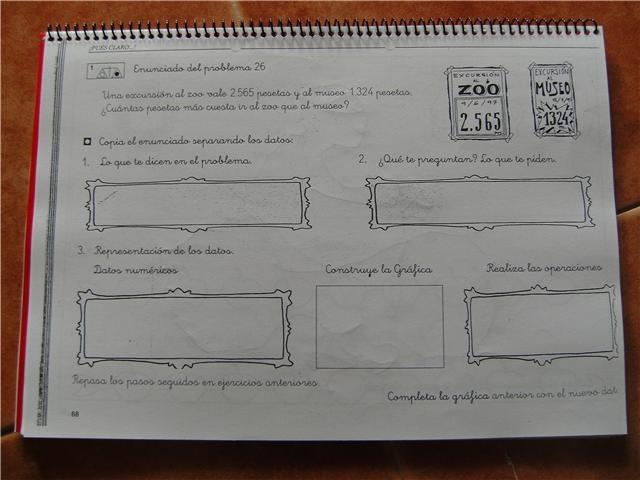 ¡PUES CLARO...!
1. Enunciado del problema 26
Una excursión al zoo vale 2.565 pesetas y al museo 1.324 pesetas.
¿Cuántas pesetas más cuesta ir al zoo que al museo?
EXCURSIÓN
AL
ZOO
9/6/97
2.565
EXCURSIÓN
AL
MUSEO
1324
Copia el enunciado separando los datos:
1. Lo que te dicen en el problema.
2. ¿Qué te preguntan? Lo que te piden.
3. Representación de los datos.
Datos numéricos
Construye la Gráfica
Realiza las operaciones
Repasa los pasos seguidos en ejercicios anteriores.
Completa la gráfica anterior con el nuevo dat
68